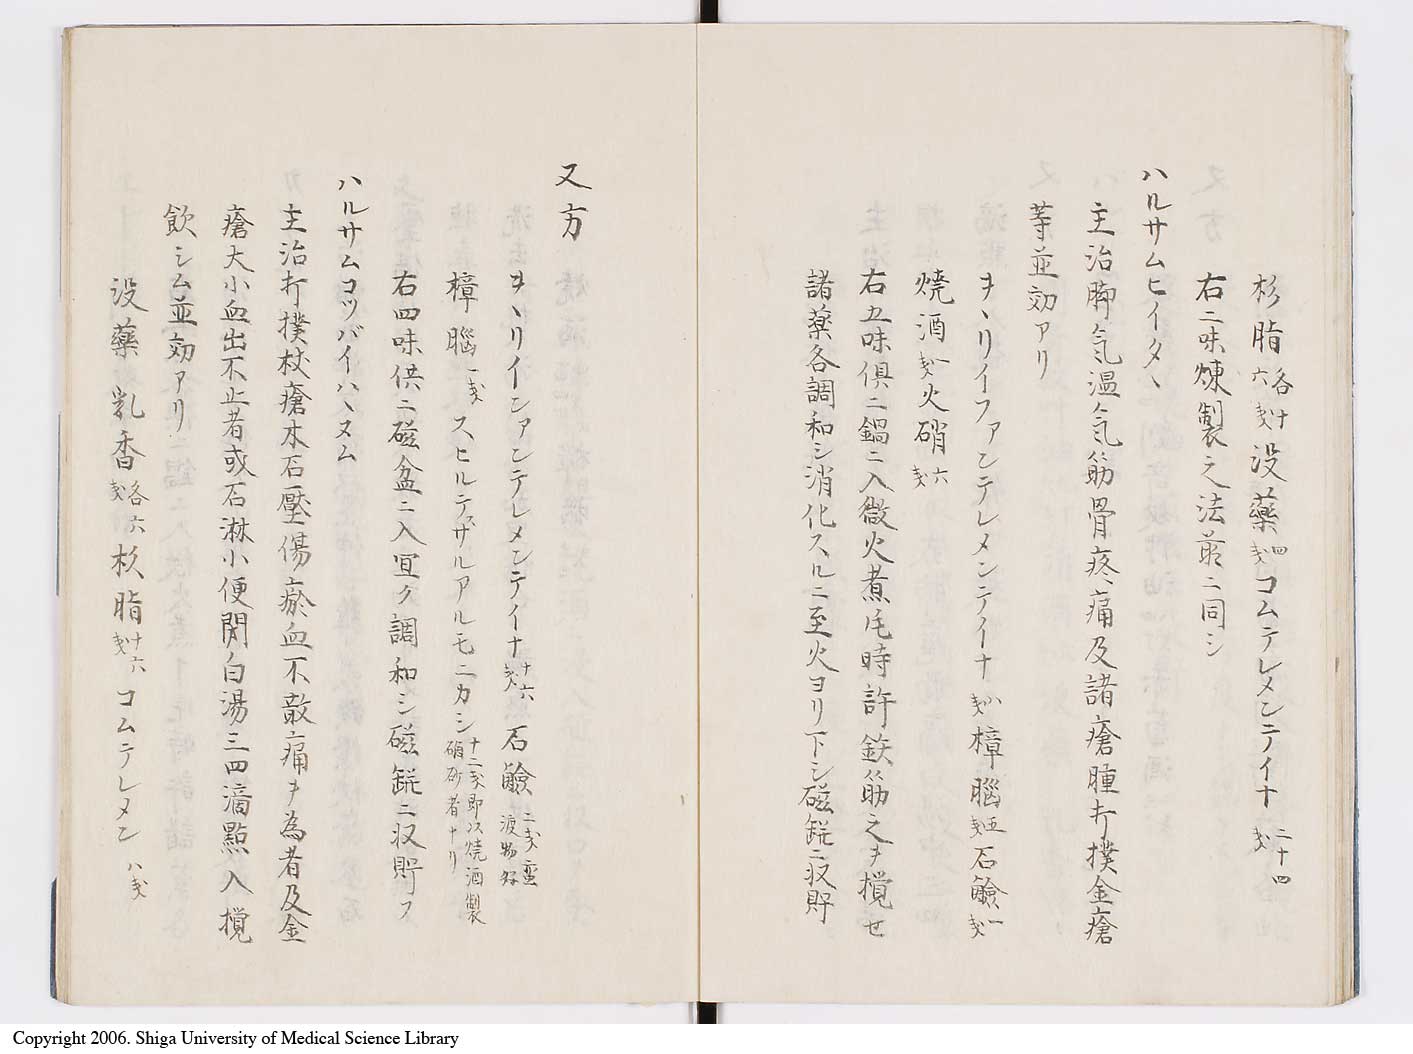 杉脂各十六戔没藥四戔コムテレメンテイナ二十四戔
右二味煉製之法前ニ同シ
ハルサムヒイタヽ
主治脚氣温氣筋骨疼痛及諸瘡腫打撲金瘡
等並効アリ
ヲヽリイフアンテレメンテイナ八戔樟腦五戔石鹼一戔
燒酒一戔火硝六戔
右五味倶ニ鍋ニ入微火煮片時許鉄筯之ヲ攪セ
諸藥各調和シ消化スルニ至火ヨリ下シ磁甁ニ収貯
又方
ヲヽリインアンテレメンテイナ十六戔石鹼二戔蛮渡物好
樟腦一戔スヒルテザルアルモニカシ十二戔即以燒酒製硝砂者ナリ
右四味供ニ磁盆ニ入冝ク調和シ磁甁ニ収貯フ
ハルサムコツバイハヽヌム
主治打撲杖瘡木石壓傷瘀血不散痛ヲ為者及金
瘡大小血出不止者或石淋小便閉白湯三四滴點入攪
飲シム並効アリ
没藥乳香各六戔杉脂十六戔コムテレメン八戔
Copyright 2006. Shiga University of Medical Science Library